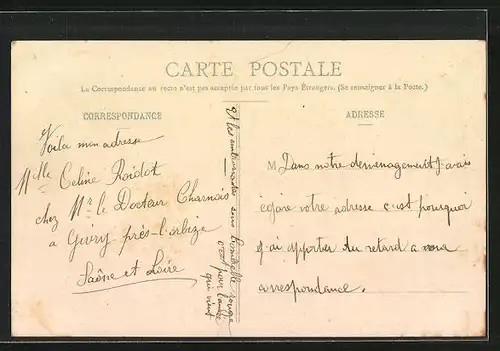 CARTE POSTALE
La Correspondance au recto n'est pas acceptée par tous les Pays Étrangers. (Se renseigner à la Poste.)
CORRESPONDANCE
Voila mon adresse
Mlle Celine Roidot
chez Mr le Docteur Charnois
a Givry près-l'orbize
Saône et Loire
Et les embrassades sous
rouge
pour l'année
qui vient
ADRESSE
M Dans notre déménagement j'avais
égaré votre adresse c'est pourquoi
j'ai apporter du retard a ma
correspondance.